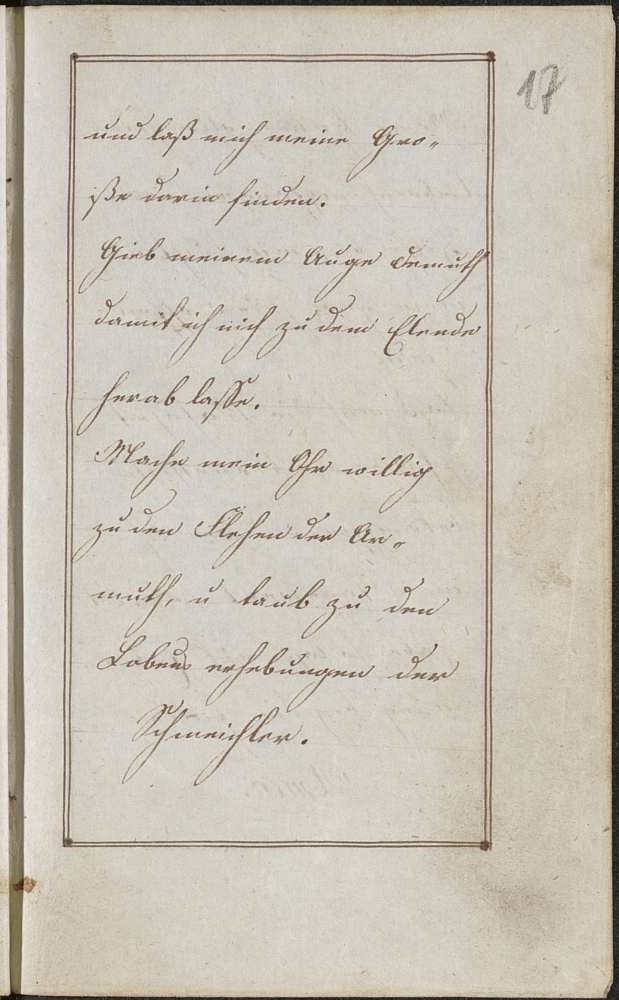 17
und laß mich meine Grö-
ße darin finden.
Gieb meinem Auge Demuth
damit ich mich zu dem Elende
herab lasse.
Mache mein Ohr willig
zu den Flehen der Ar-
muth, u taub zu den
Lobens erhebungen der
Schmeichler.